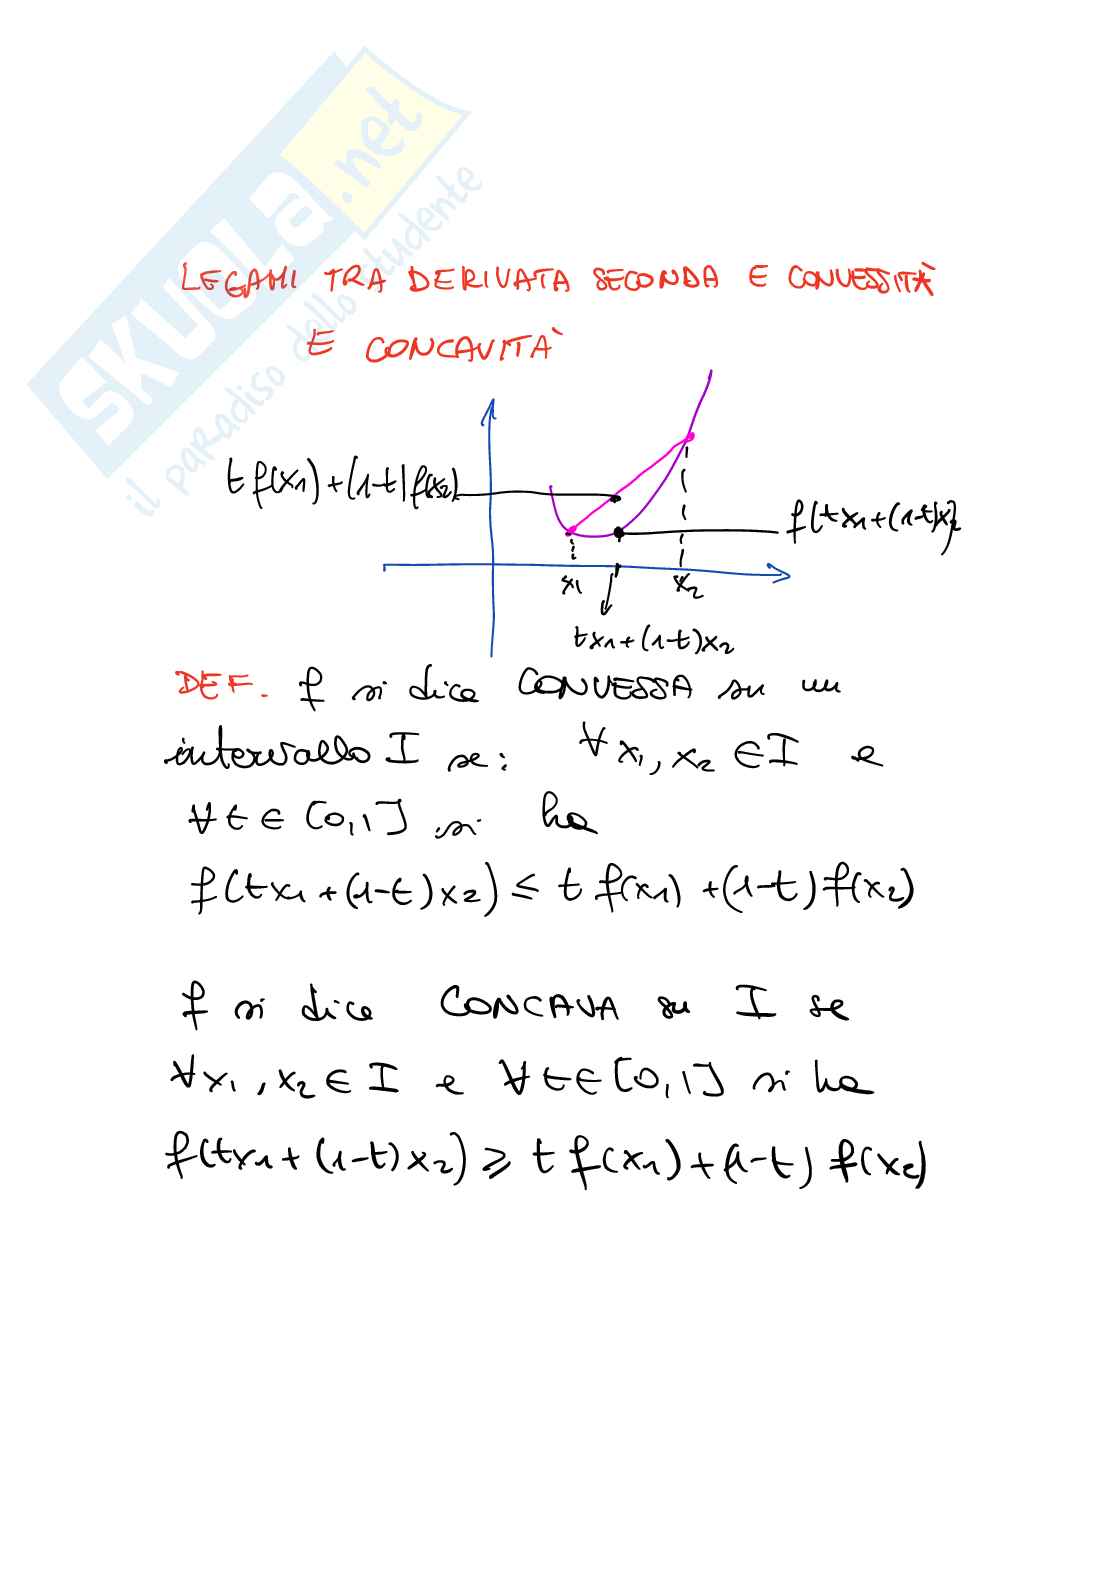 SKUOLA.net
il paradiso dello studente
LEGAMI TRA DERIVATA SECONDA E CONVESSITÀ
E CONCAVITÀ
t f(x1) + (1-t) f(x2)
f(tx1 + (1-t)x2)
x1
x2
tx1 + (1-t)x2
DEF. f si dice CONVESSA su un
intervallo I se: ∀ x1, x2 ∈ I e
∀ t ∈ [0,1] si ha
f(tx1 + (1-t)x2) ≤ t f(x1) + (1-t) f(x2)
f si dice CONCAVA su I se
∀ x1, x2 ∈ I e ∀ t ∈ [0,1] si ha
f(tx1 + (1-t)x2) ≥ t f(x1) + (1-t) f(x2)